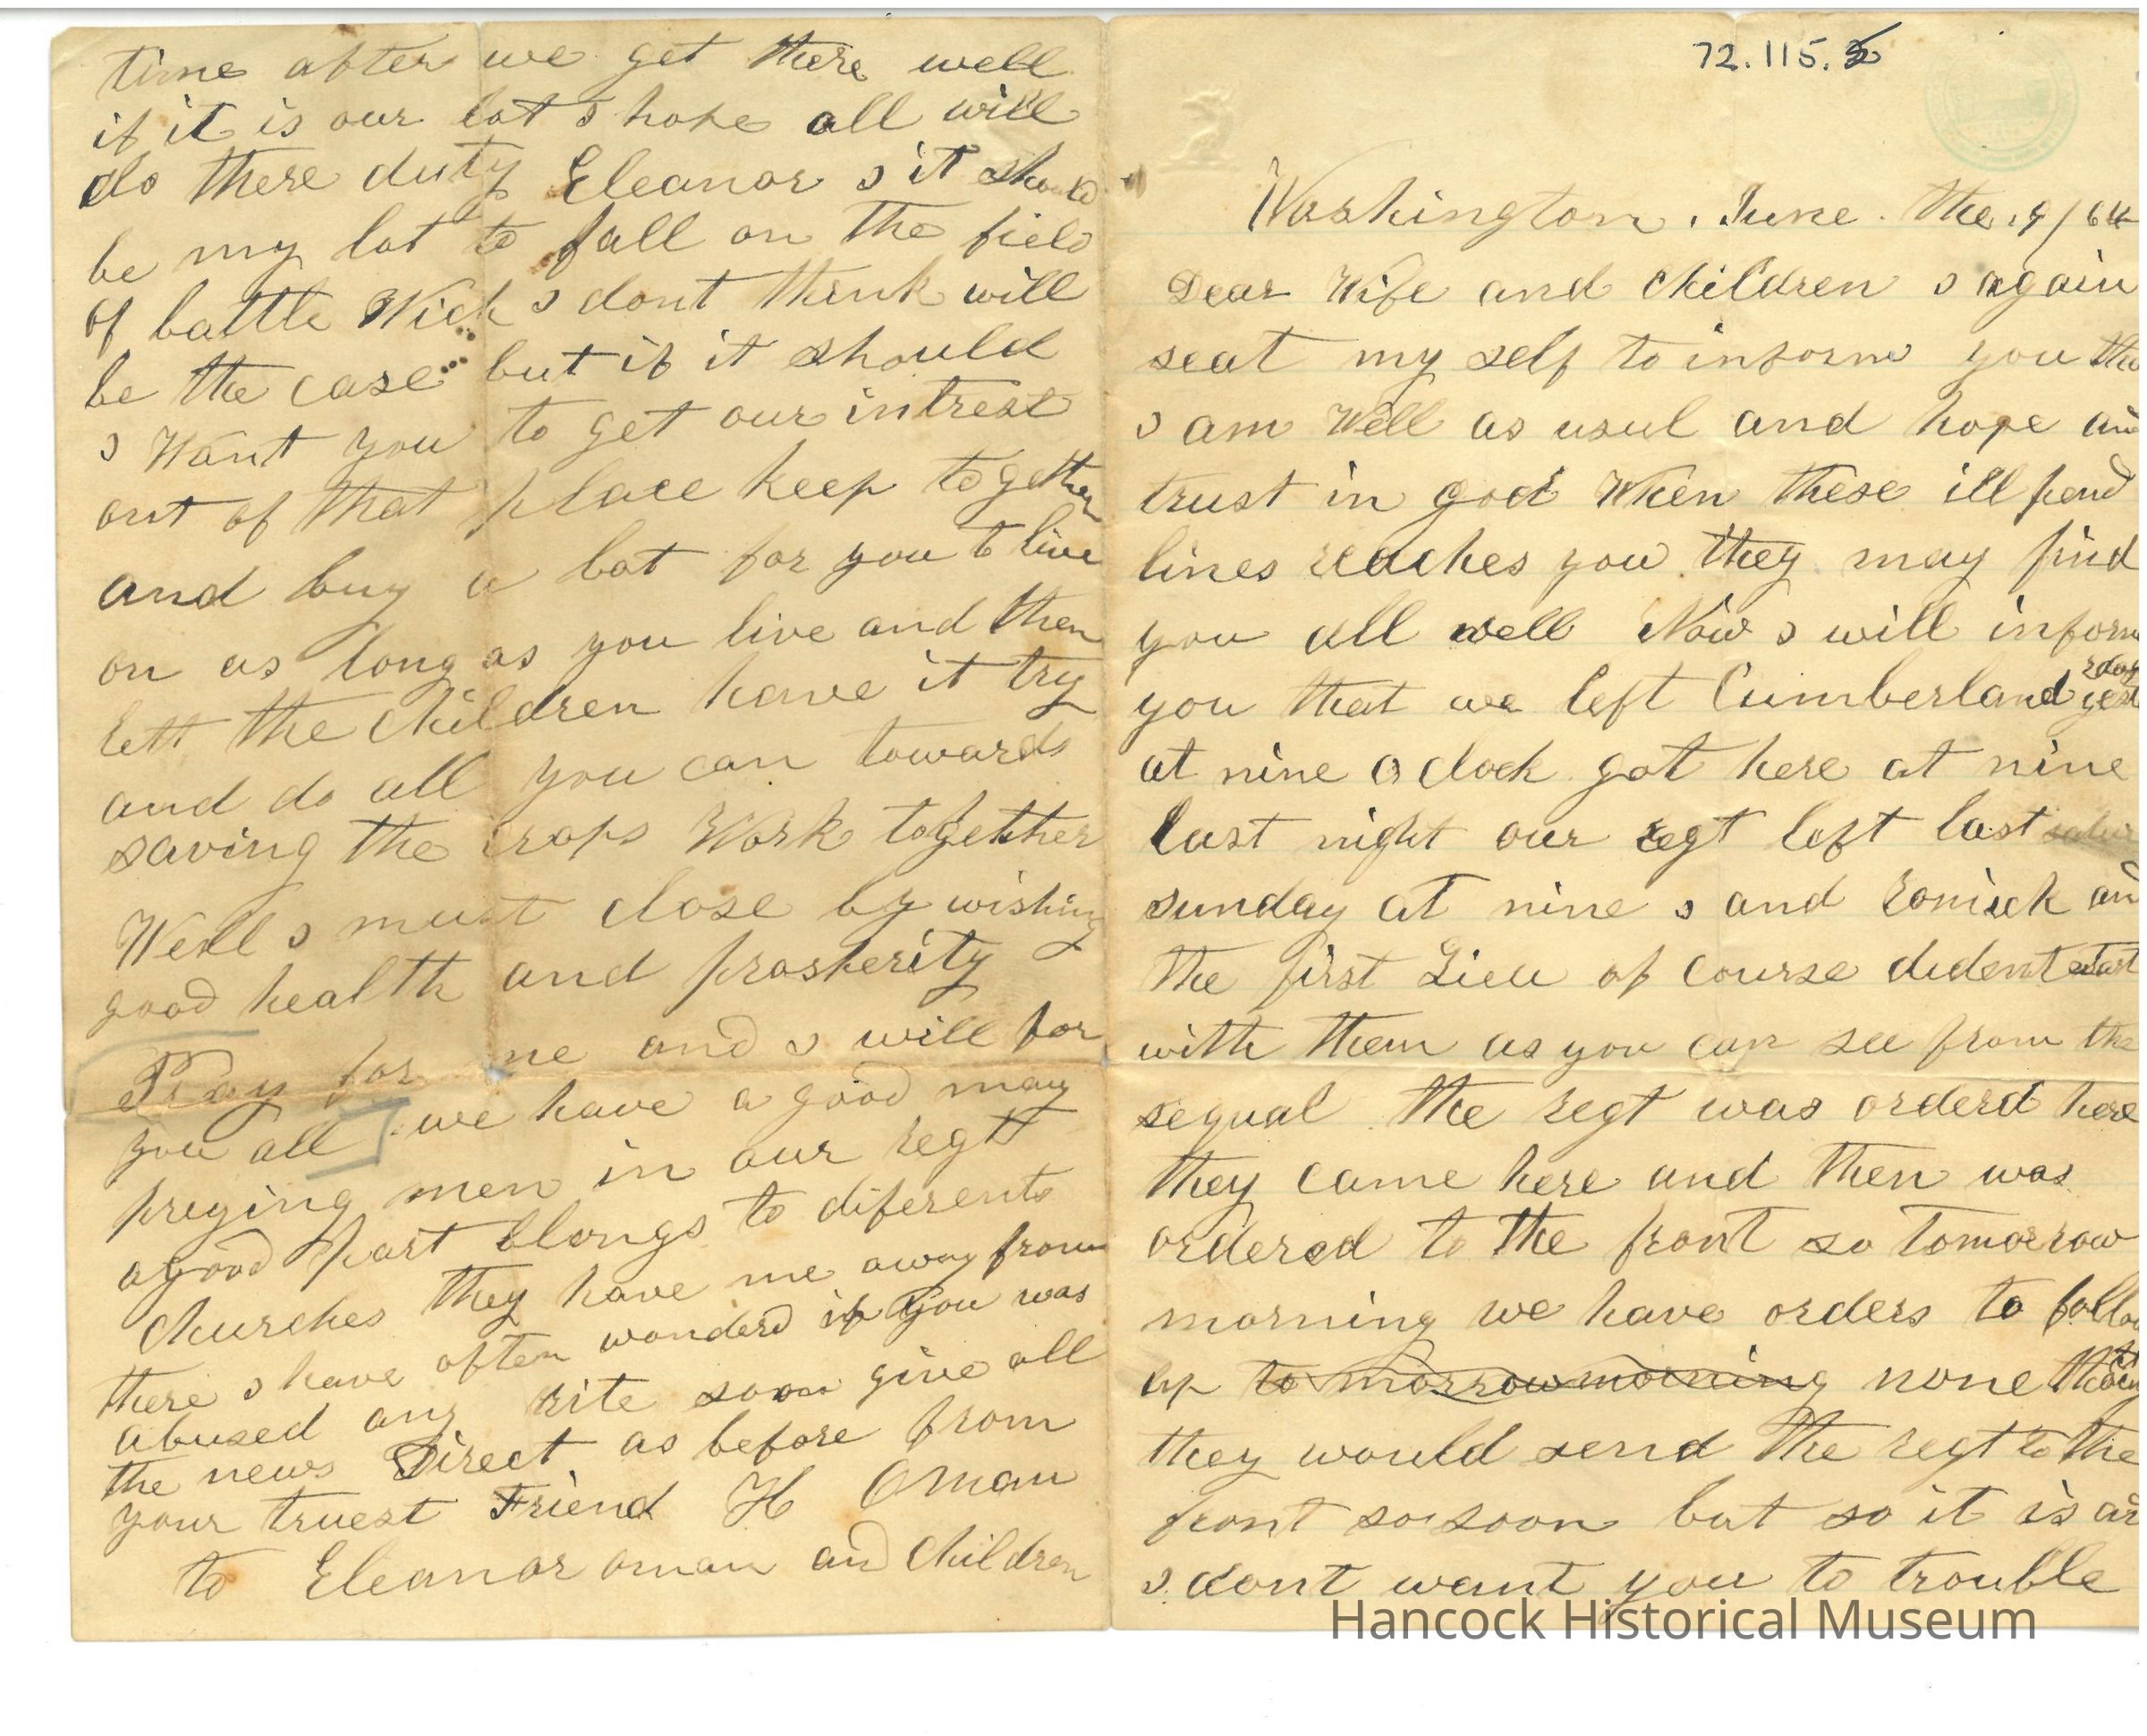 72.115.5
Washington. June. the 9/64
Dear Wife and Children I again
seat my self to inform you tha
I am Well as usul and hope an
trust in god When these ill pend
lines reaches you they may find
you all well Now I will inform
you that we left Cumberland yeste rday
at nine o clock got here at nine
last night our regt left last
sunday at nine I and Romick an
the first Lieu of course dident start
with them as you can see from the
sequal the regt was orderd here
they came here and then was
ordered to the front so tomorrow
morning we have orders to follow
up to morrow morning none
they would send the regt to the
front so soon but so it is an
I dont want you to trouble
time after we get there well
if it is our lot I hope all will
do there duty Eleanor I it should
be my lot to fall on the field
of battle Wich I dont think will
be the case but if it should
I Want you to get our intrest
out of that place keep together
and buy a lot for you to live
on as long as you live and then
lett the Children have it try
and do all you can towards
saving the crops Work together
Well I must close by wishing
good health and prosperity
Pray for me and I will for
you all we have a good may
preying men in our regt
a good part blongs to diferents
Churches they have me away from
there I have often wonderd if you was
abused any rite soon give all
the news Direct as before from
your truest Friend H Oman
to Eleanor oman and Children
Hancock Historical Museum